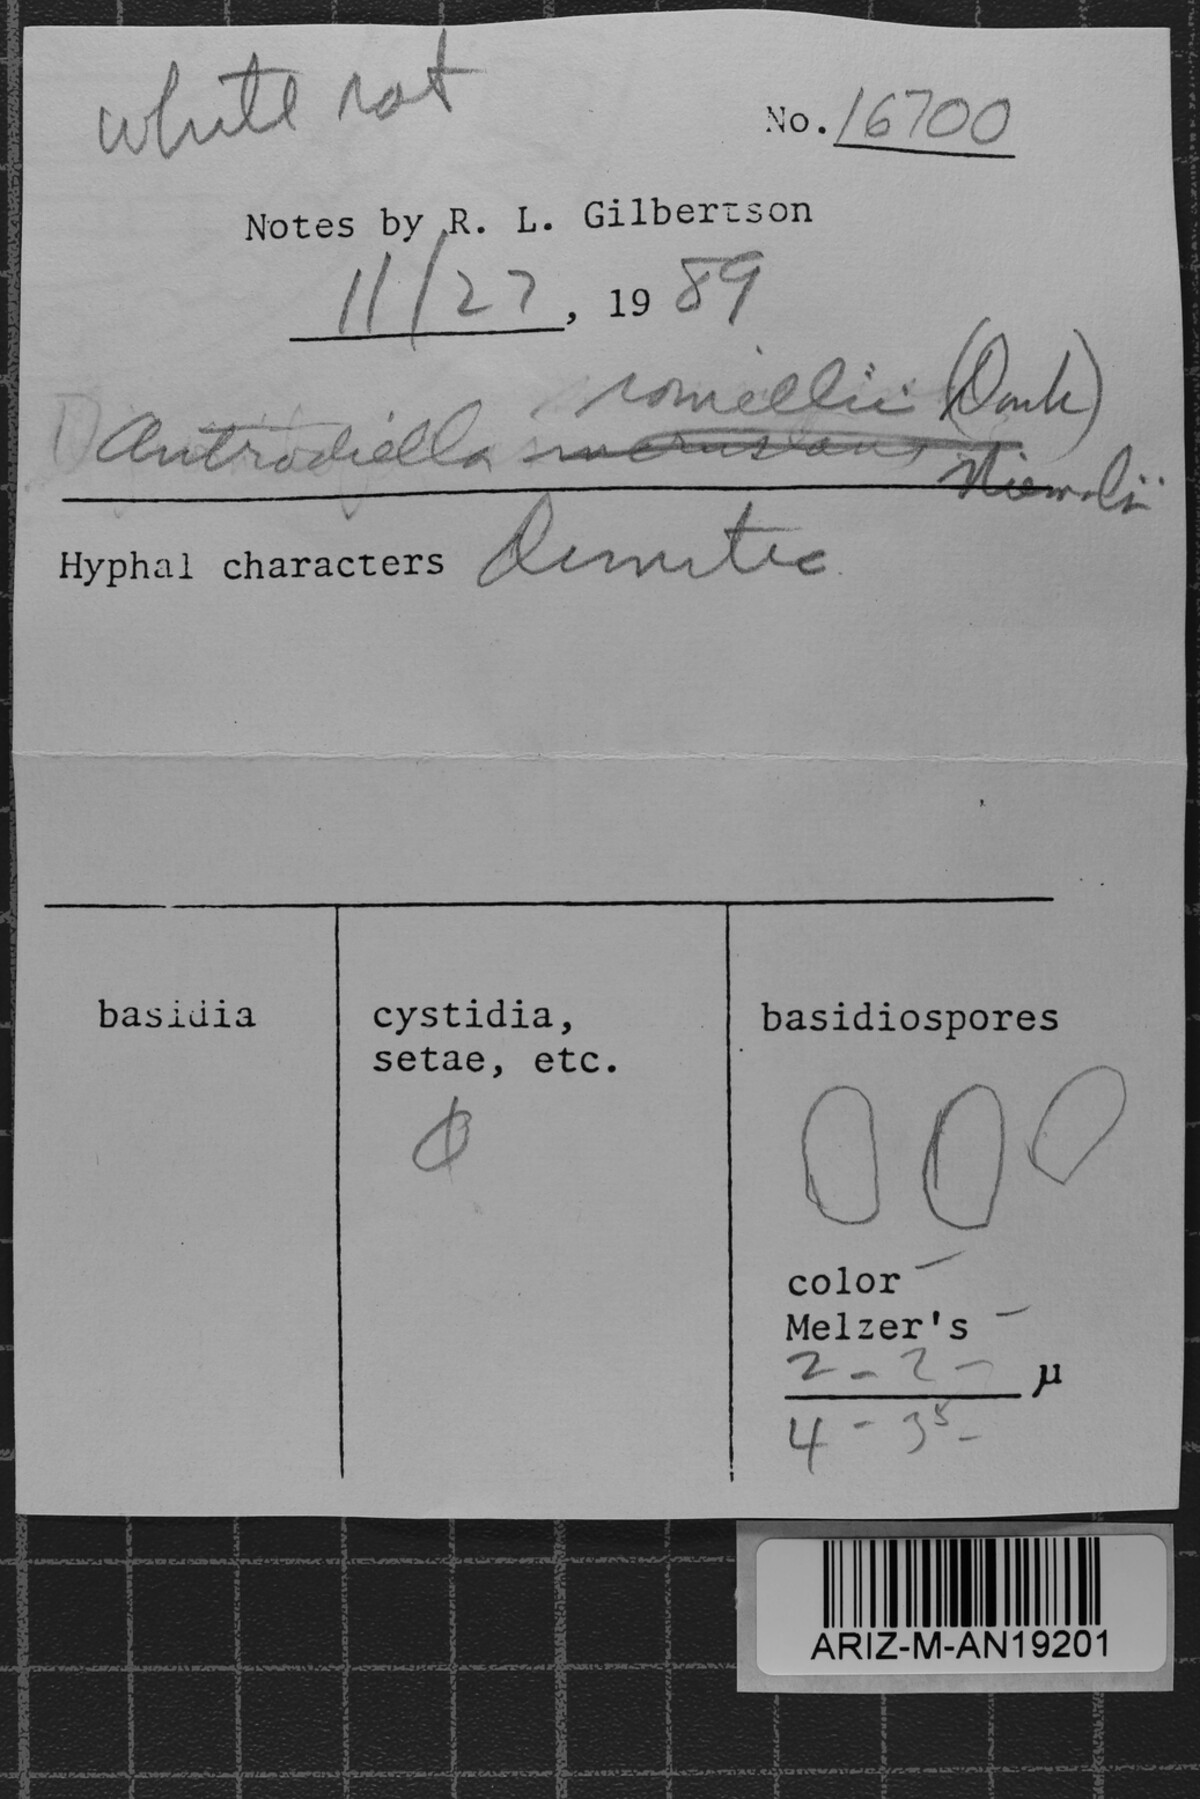 white rot
No. 16700
Notes by R. L. Gilbertson
11/27, 19 89
romellii (Donk)
Antrodiella
Niemelä
Hyphal characters Dimitic
basidia
cystidia,
setae, etc.
basidiospores
φ
color –
Melzer's –
2 - 2 – µ
4 - 3⁵ –
ARIZ-M-AN19201